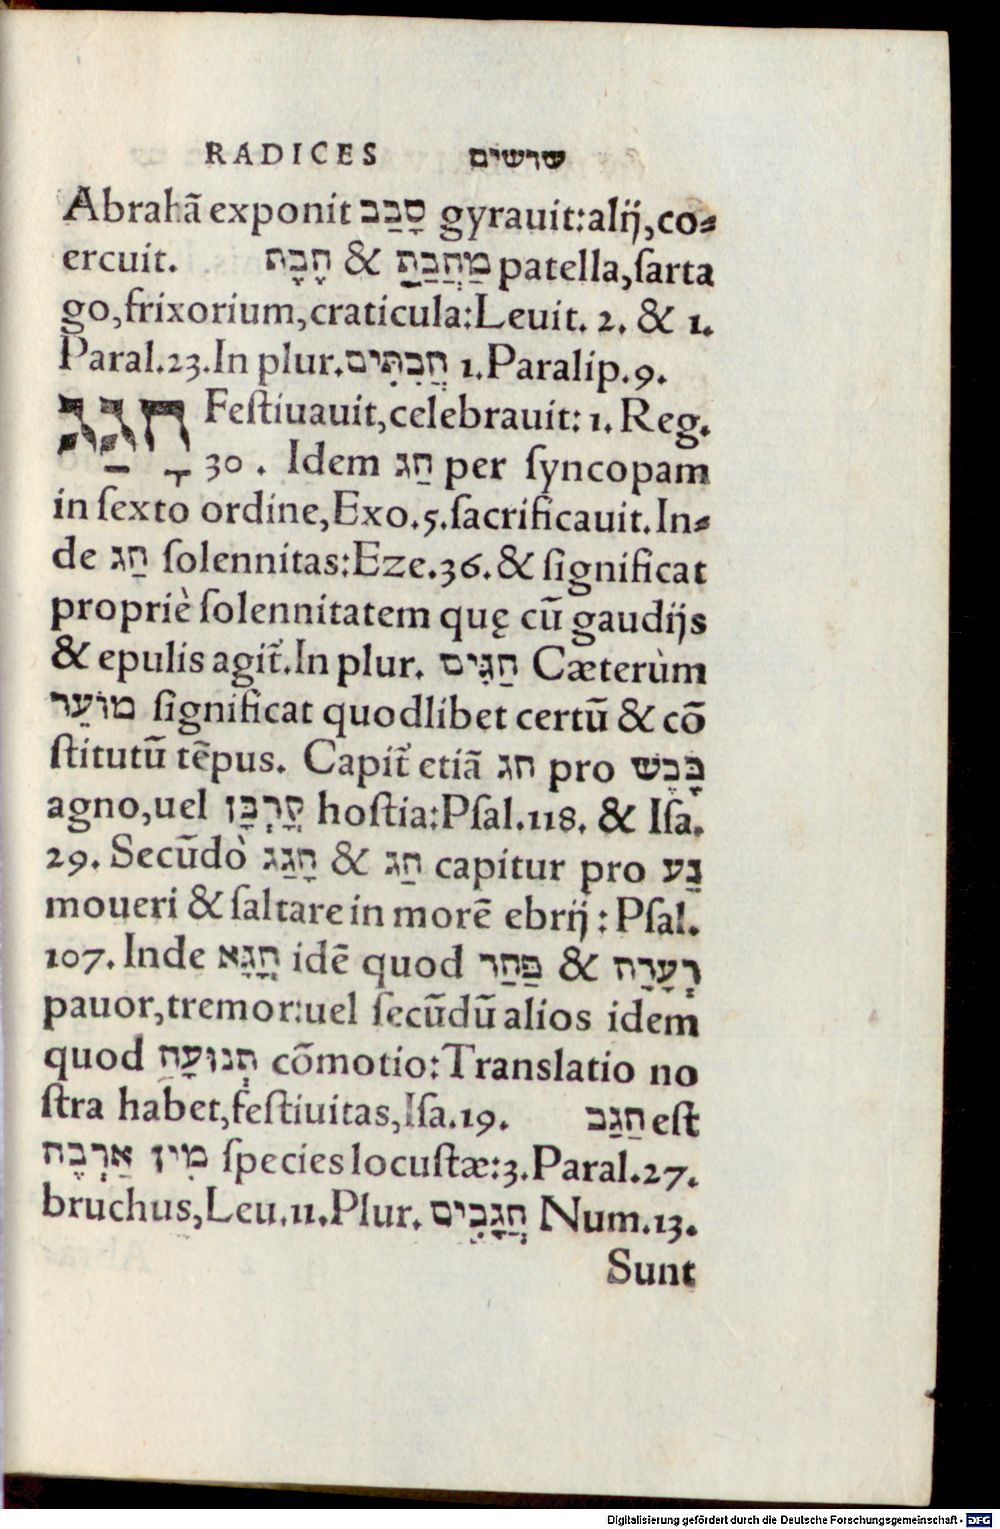 RADICES שרשים
Abrahã exponit סָבַב gyrauit:alij,co⸗
ercuit. חָבָת & מַחֲבַת patella,ſarta
go,frixorium,craticula:Leuit. 2. & 1.
Paral.23.In plur.חֲבִתִּים 1.Paralip.9.
חָגַג Feſtiuauit,celebrauit: 1. Reg.
30 . Idem חַג per ſyncopam
in ſexto ordine,Exo.5.ſacrificauit.In⸗
de חַג ſolennitas:Eze.36.& ſignificat
propriè ſolennitatem quę cũ gaudijs
& epulis agit̃.In plur. חַגִּים Cæterùm
מוֹעֵד ſignificat quodlibet certũ & cõ
ſtitutũ tẽpus. Capit̃ etiã חג pro כֶּבֶשׂ
agno,uel קָרְבָּן hoſtia:Pſal.118. & Iſa.
29. Secũdò חָגַג & חַג capitur pro נַע
moueri & ſaltare in morẽ ebrij : Pſal.
107. Inde חָגָּא idẽ quod פַּחַד & רְעָדָה
pauor,tremor:uel ſecũdũ alios idem
quod תְנוּעָה cõmotio:Translatio no
ſtra habet,feſtiuitas,Iſa.19. חַגַב eſt
מִין אַרְבֶּה species locuſtæ:3.Paral.27.
bruchus,Leu.11.Plur. חֲגָבִים Num.13.
Sunt
Digitalisierung gefördert durch die Deutsche Forschungsgemeinschaft - DFG